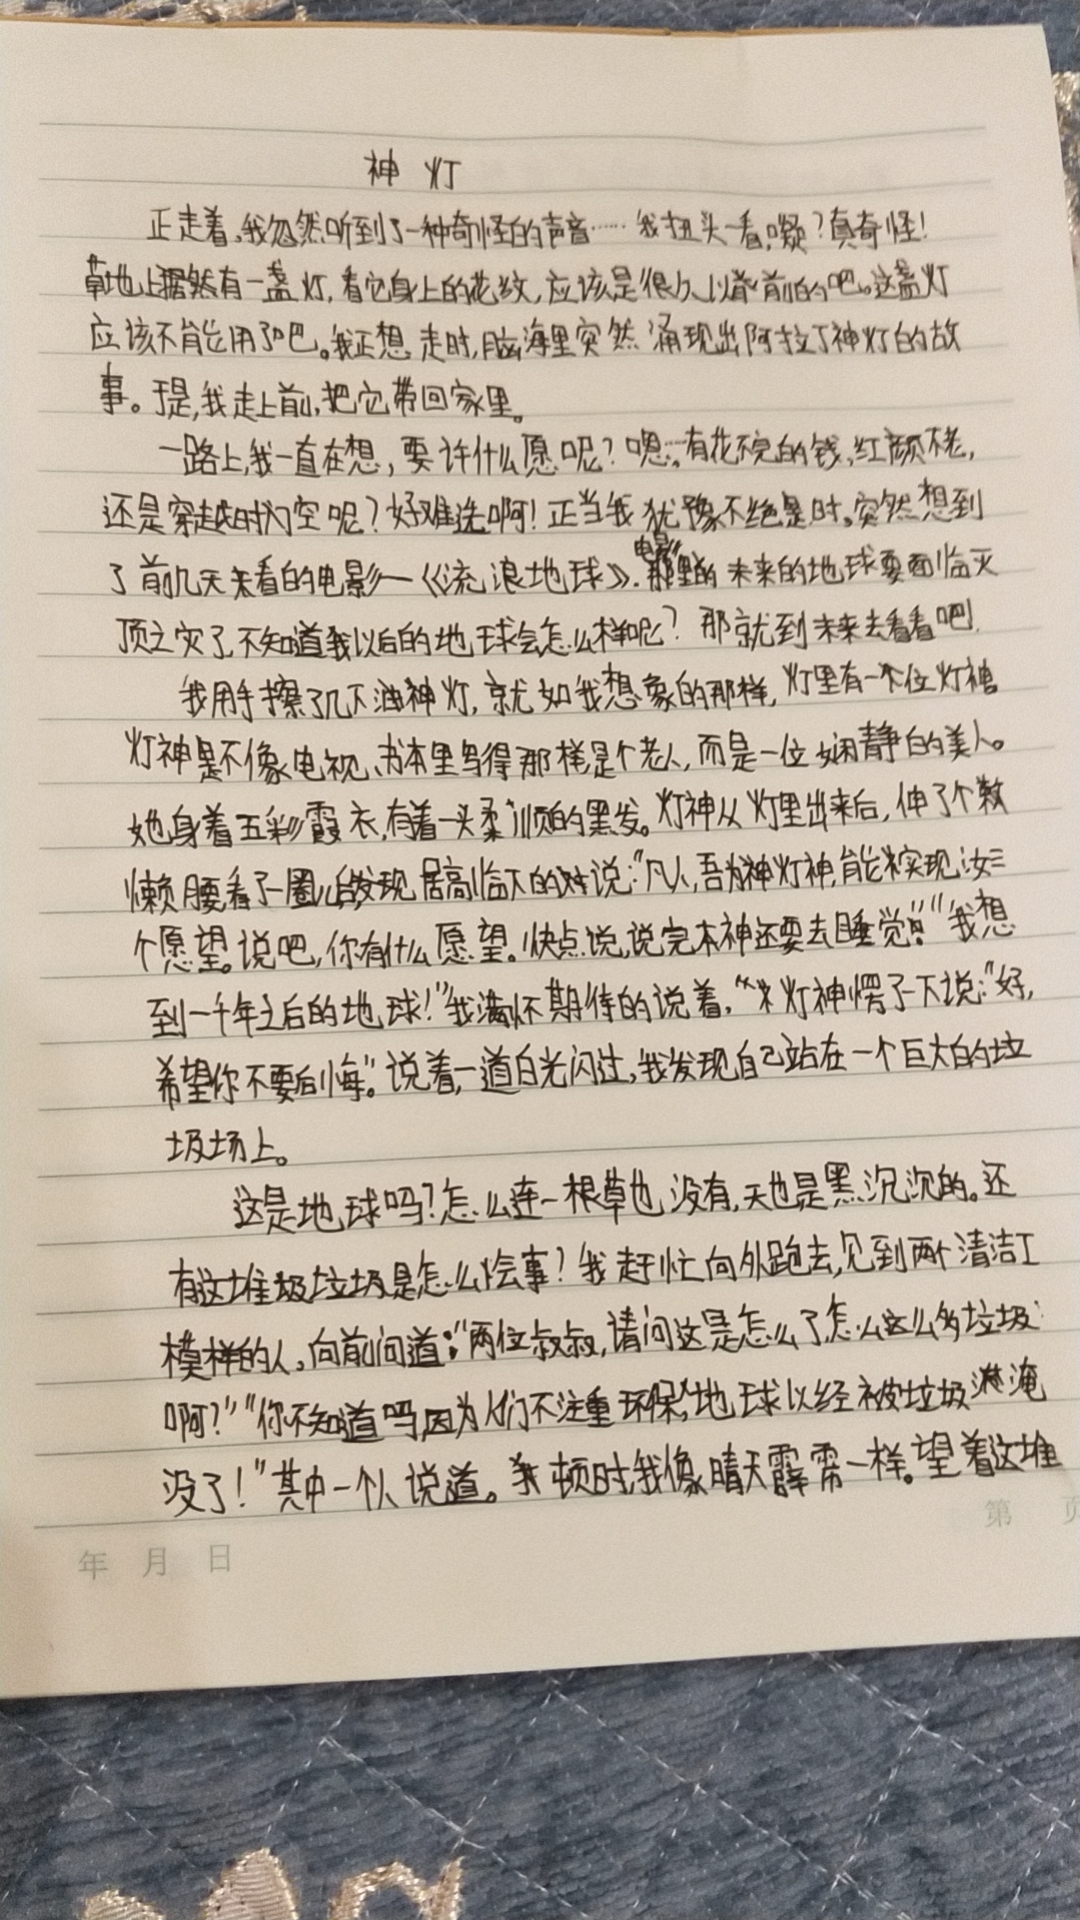 神灯
正走着,我忽然听到了一种奇怪的声音……我扭头一看,嘿?真奇怪!
草地上居然有一盏灯,看它身上的花纹,应该是很久以前的吧。这盏灯
应该不能用了吧。我正想走时,脑海里突然涌现出阿拉丁神灯的故
事。于是,我走上前,把它带回家里。
一路上,我一直在想,要许什么愿呢?嗯…有花不完的钱,红颜不老,
还是穿越时空呢?好难选啊!正当我犹豫不绝是时。突然想到
了前几天来看的电影—《流浪地球》.电影那里的未来的地球要面临灭
顶之灾了,不知道我以后的地球会怎么样呢?那就到未来去看看吧!
我用手擦了几下油神灯,就如我想象的那样,灯里有一个位灯神
灯神是不像电视、书本里写得那样是个老人,而是一位娴静的美人。
她身着五彩霞衣,有着一头柔顺的黑发。灯神从灯里出来后,伸了个数
懒腰看了一圈儿发现居高临下的对说:"凡人,吾为神灯神,能实现汝三
个愿望。说吧,你有什么愿望。快点说,说完本神还要去睡觉!""我想
到一千年之后的地球!"我满怀期待的说着,"灯神愣了一下说:"好,
希望你不要后悔"。说着,一道白光闪过,我发现自己站在一个巨大的垃
圾场上。
这是地球吗?怎么连一根草也没有,天也是黑沉沉的。还
有这堆圾垃圾是怎么会事?我赶忙向外跑去,见到两个清洁工
模样的人。向前问道:"两位叔叔,请问这是怎么了,怎么这么多垃圾
啊?""你不知道吗,因为人们不注重环保,地球以经被垃圾淹
没了!"其中一个人说道。我顿时,我像晴天霹雳一样。望着这堆
年 月 日
第 页